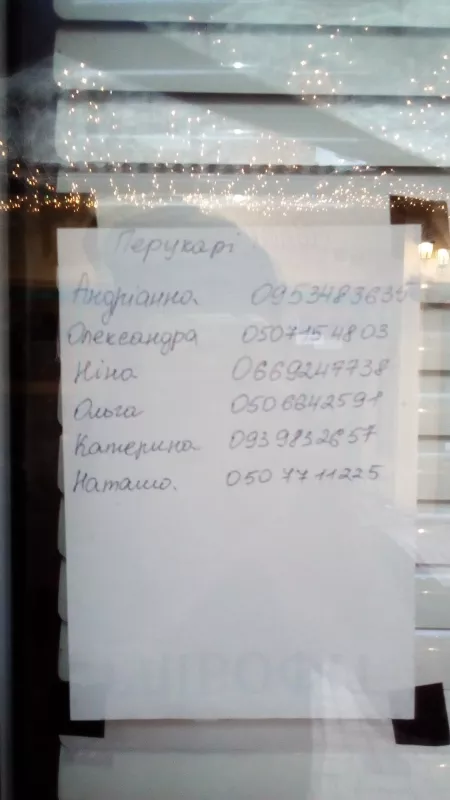 Перукарі
Андріанна 0953483635
Олександра 0507154803
Ніна 0669247738
Ольга 0506642591
Катерина 0939832657
Наташа 0507711225